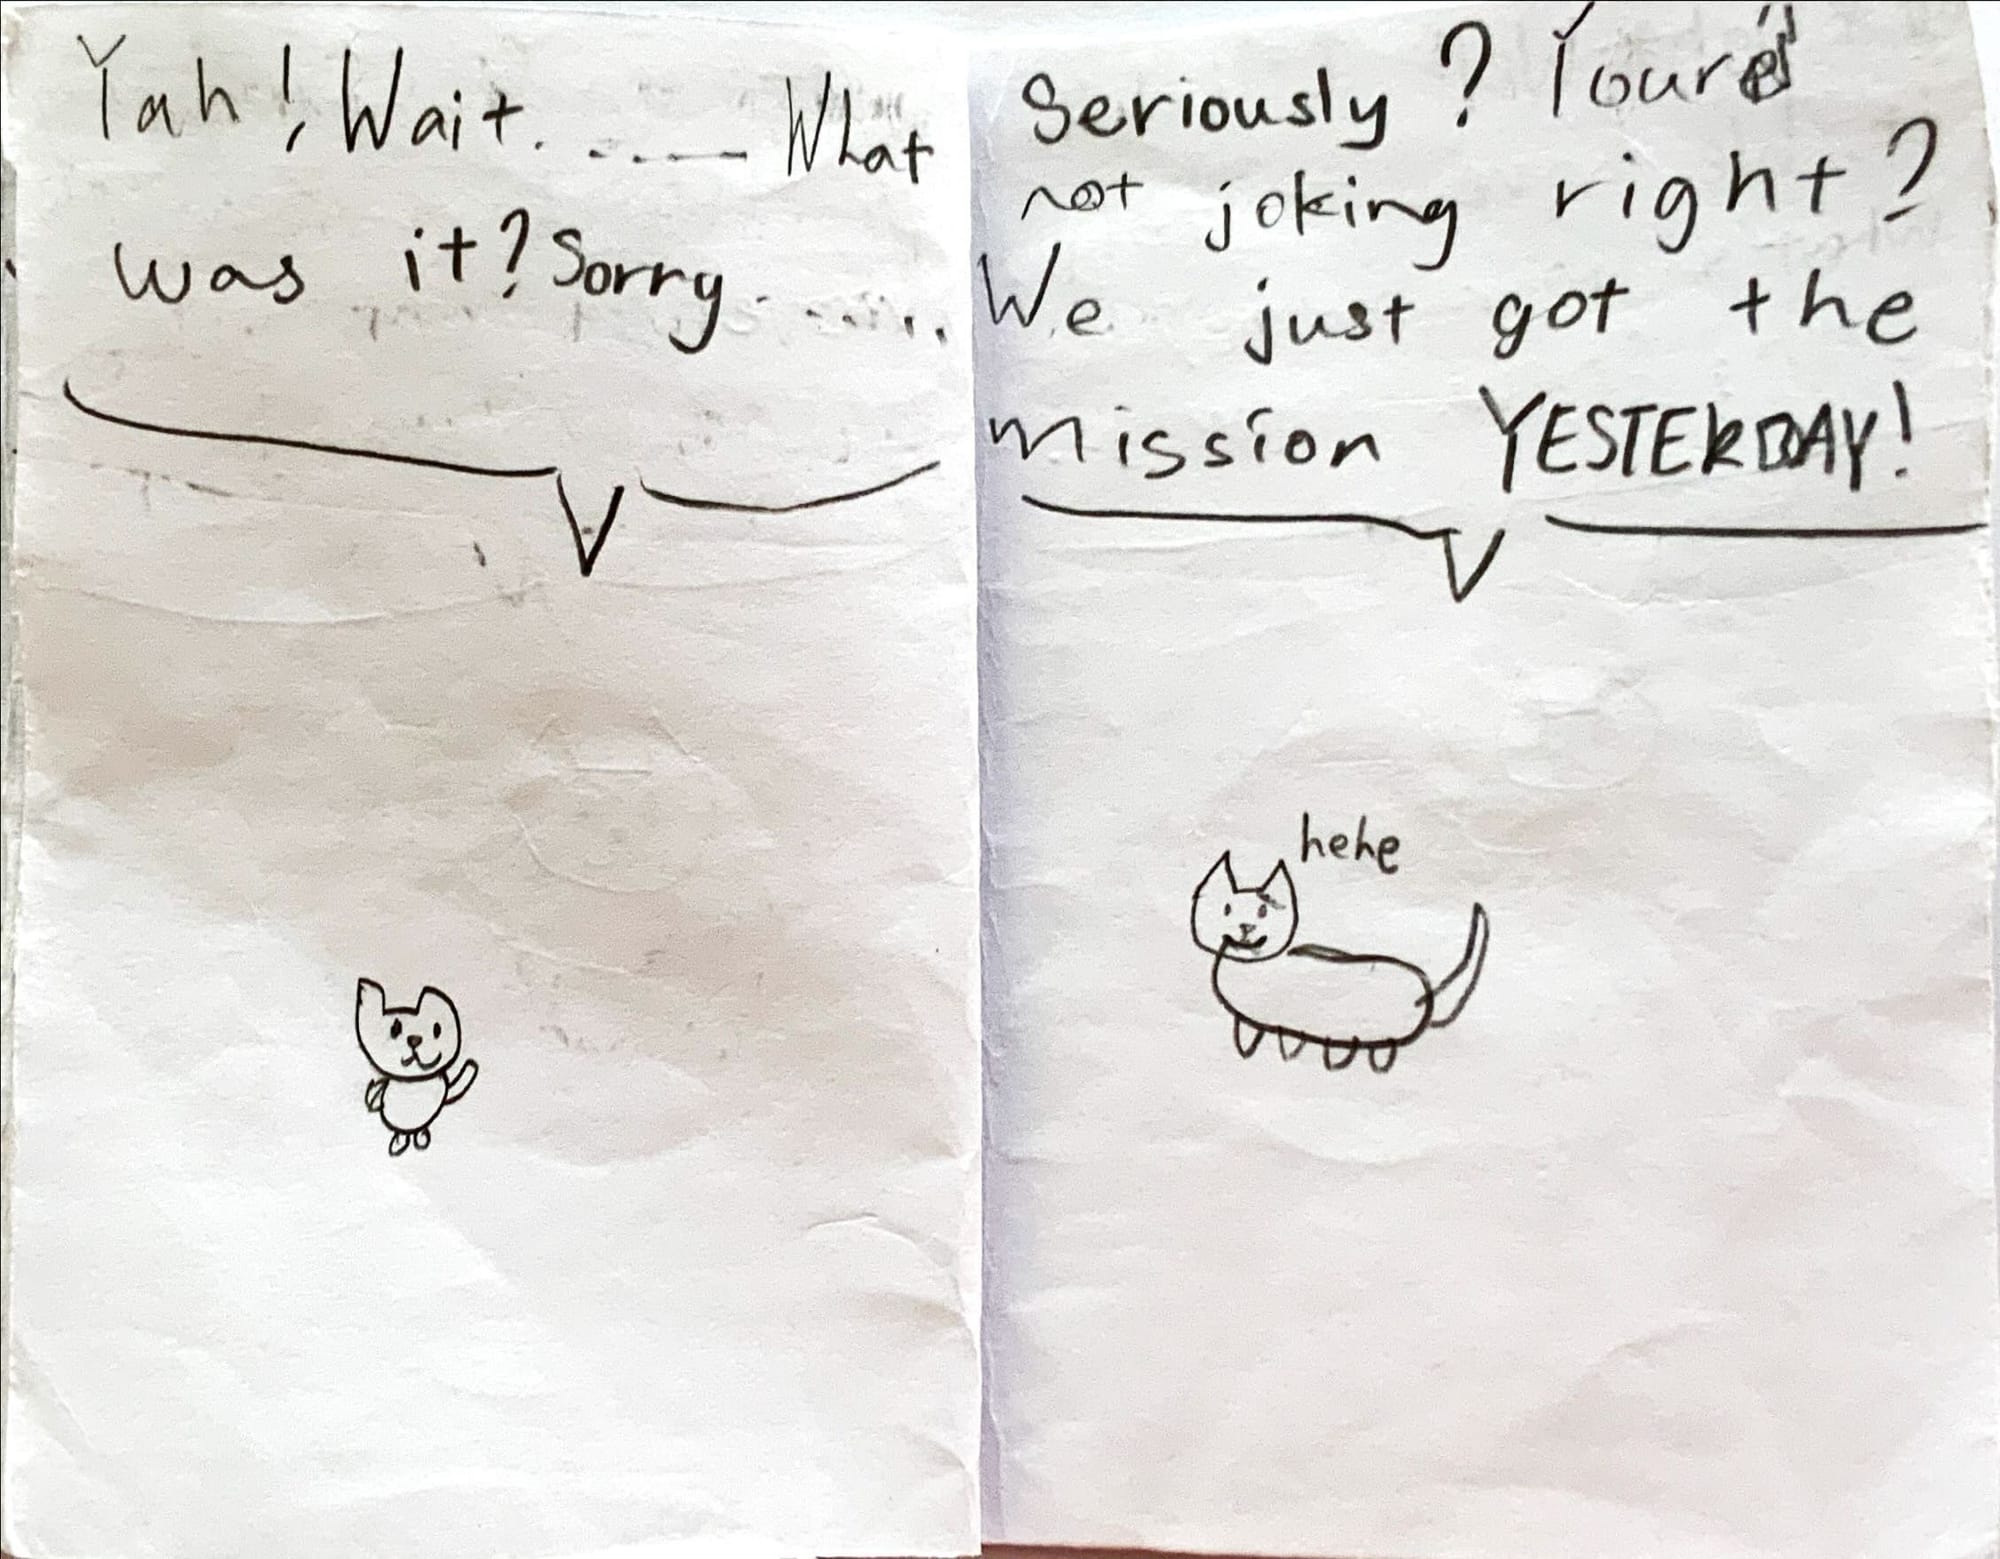 Yah! Wait. ..---- What
was it? Sorry.......
Seriously? Your'e
not joking right?
We just got the
mission YESTERDAY!
hehe